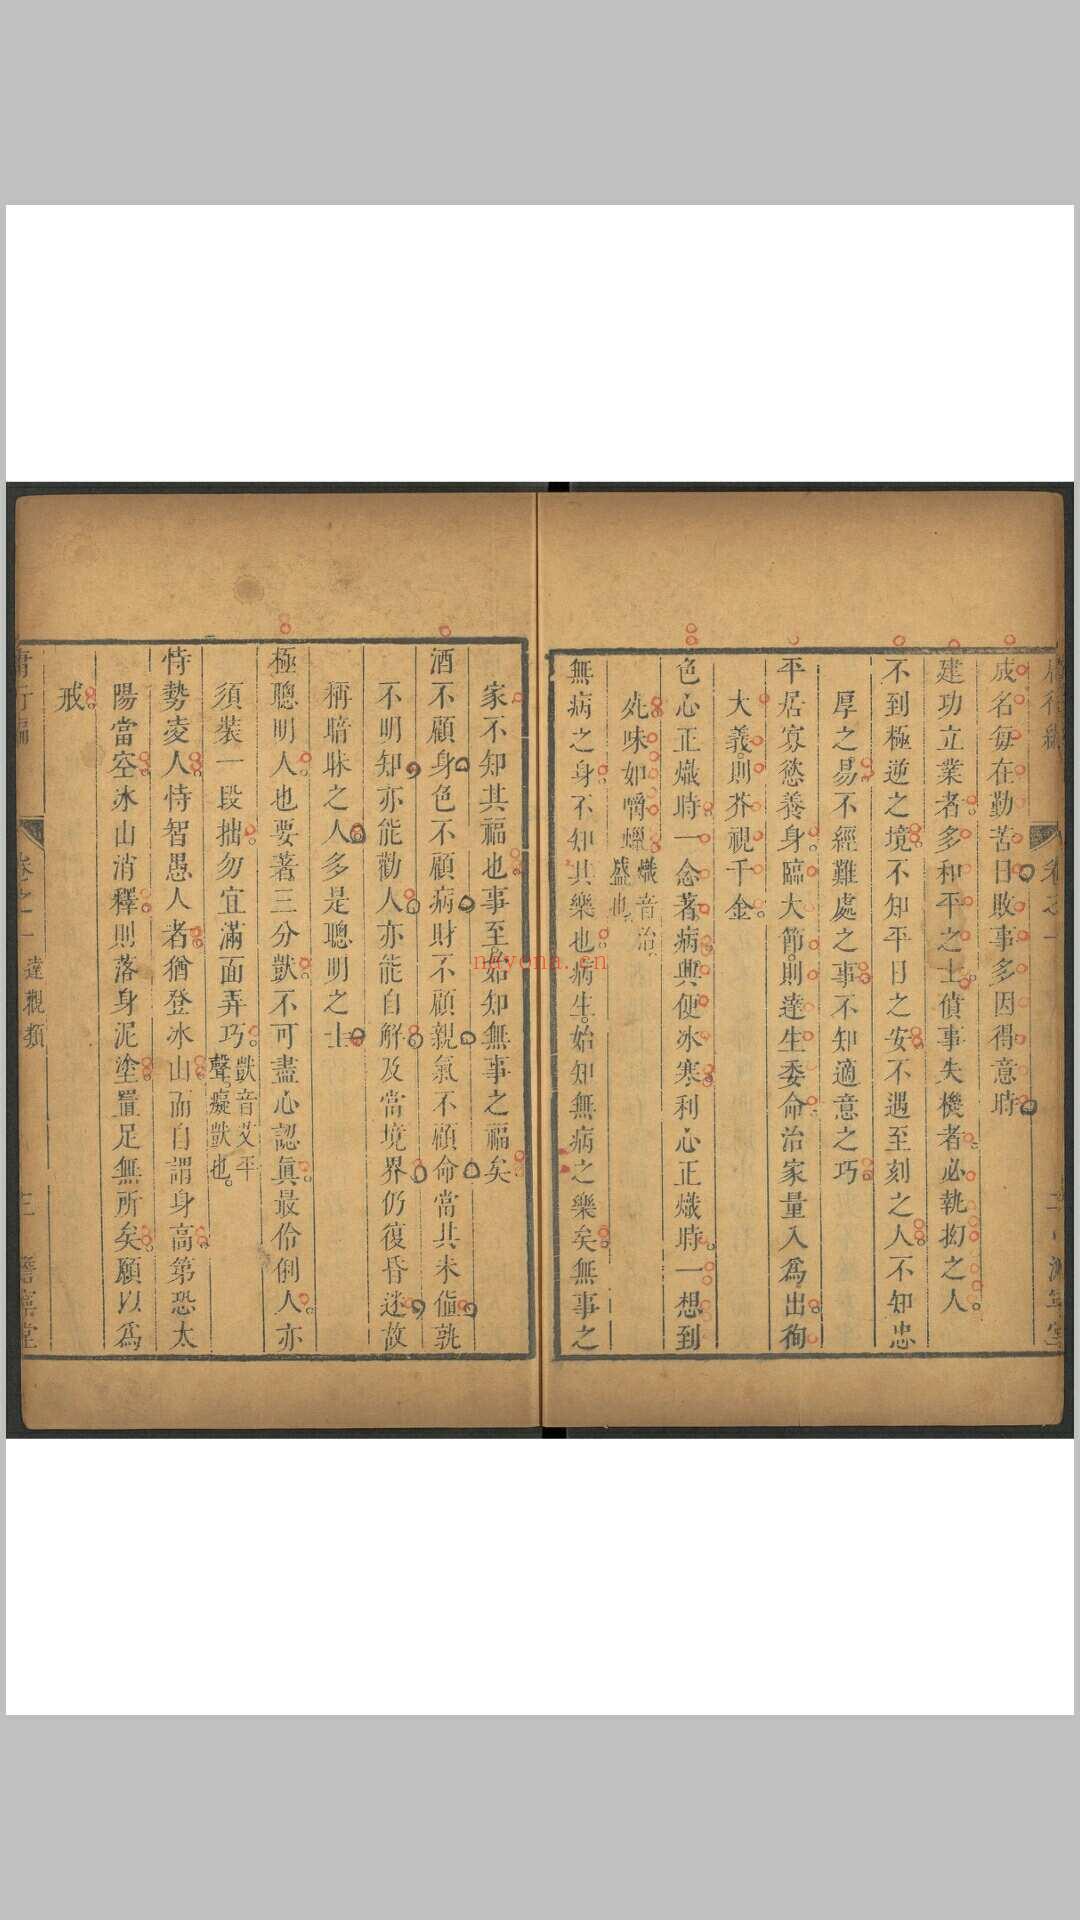 成名每在勤苦日敗事多因得意時
建功立業者多和平之士僨事失機者必執拗之人
不到極逆之境不知平日之安不遇至刻之人不知忠
厚之易不經難處之事不知適意之巧
平居寡慾養身臨大節則達生委命治家量入爲出徇
大義則芥視千金
色心正熾時一念著病興便冰寒利心正熾時一想到
死味如嚼蠟熾音治
盛也
無病之身不知其樂也病生始知無病之樂矣無事之
家不知其福也事至始知無事之福矣
酒不顧身色不顧病財不顧親氣不顧命當其未值孰
不明知亦能勸人亦能自解及當境界仍復昏迷故
稱暗昧之人多是聰明之士
極聰明人也要著三分獃不可盡心認眞最伶俐人亦
須裝一段拙勿宜滿面弄巧獃音艾平
聲癡獃也
恃勢凌人恃智愚人者猶登冰山而自謂身高第恐太
陽當空冰山消釋則落身泥塗置足無所矣願以爲
戒
卷之一 達觀類 三
nayona.cn